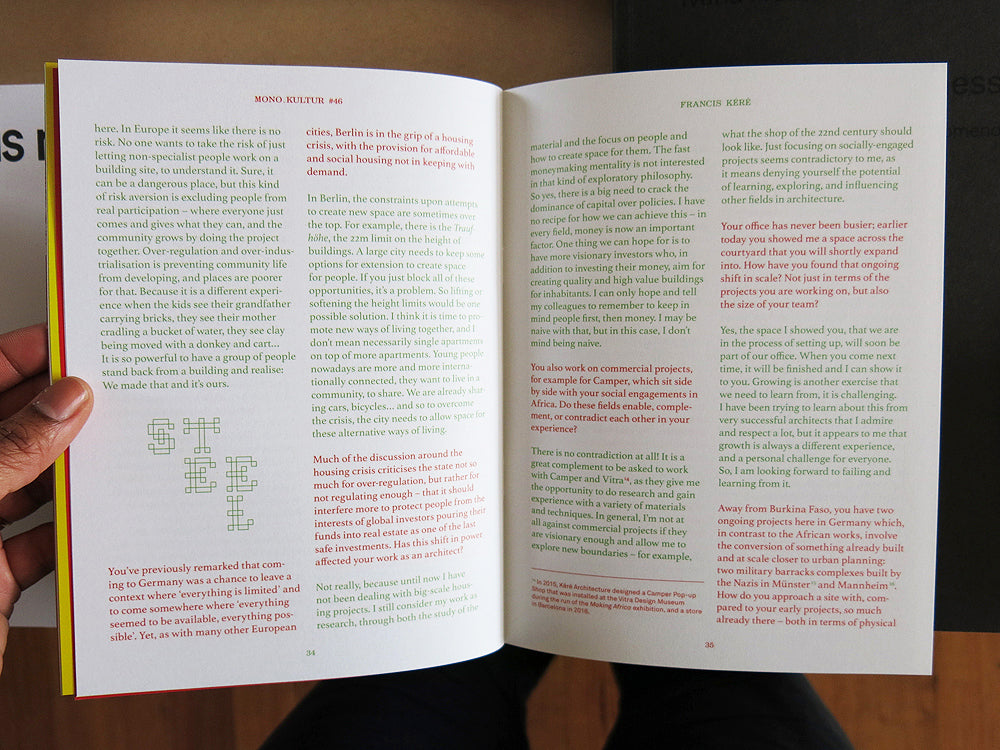 MONO.KULTUR #46
here. In Europe it seems like there is no
risk. No one wants to take the risk of just
letting non-specialist people work on a
building site, to understand it. Sure, it
can be a dangerous place, but this kind
of risk aversion is excluding people from
real participation – where everyone just
comes and gives what they can, and the
community grows by doing the project
together. Over-regulation and over-indus-
trialisation is preventing community life
from developing, and places are poorer
for that. Because it is a different experi-
ence when the kids see their grandfather
carrying bricks, they see their mother
cradling a bucket of water, they see clay
being moved with a donkey and cart...
It is so powerful to have a group of people
stand back from a building and realise:
We made that and it's ours.
STEEL
You've previously remarked that com-
ing to Germany was a chance to leave a
context where 'everything is limited' and
to come somewhere where 'everything
seemed to be available, everything pos-
sible'. Yet, as with many other European
cities, Berlin is in the grip of a housing
crisis, with the provision for affordable
and social housing not in keeping with
demand.
In Berlin, the constraints upon attempts
to create new space are sometimes over
the top. For example, there is the Trauf
höhe, the 22m limit on the height of
buildings. A large city needs to keep some
options for extension to create space
for people. If you just block all of these
opportunities, it's a problem. So lifting or
softening the height limits would be one
possible solution. I think it is time to pro-
mote new ways of living together, and I
don't mean necessarily single apartments
on top of more apartments. Young people
nowadays are more and more interna-
tionally connected, they want to live in a
community, to share. We are already shar-
ing cars, bicycles... and so to overcome
the crisis, the city needs to allow space for
these alternative ways of living.
Much of the discussion around the
housing crisis criticises the state not so
much for over-regulation, but rather for
not regulating enough – that it should
interfere more to protect people from the
interests of global investors pouring their
funds into real estate as one of the last
safe investments. Has this shift in power
affected your work as an architect?
Not really, because until now I have
not been dealing with big-scale hous-
ing projects. I still consider my work as
research, through both the study of the
34
FRANCIS KÉRÉ
material and the focus on people and
how to create space for them. The fast
moneymaking mentality is not interested
in that kind of exploratory philosophy.
So yes, there is a big need to crack the
dominance of capital over policies. I have
no recipe for how we can achieve this – in
every field, money is now an important
factor. One thing we can hope for is to
have more visionary investors who, in
addition to investing their money, aim for
creating quality and high value buildings
for inhabitants. I can only hope and tell
my colleagues to remember to keep in
mind people first, then money. I may be
naive with that, but in this case, I don't
mind being naive.
You also work on commercial projects,
for example for Camper, which sit side
by side with your social engagements in
Africa. Do these fields enable, comple-
ment, or contradict each other in your
experience?
There is no contradiction at all! It is a
great complement to be asked to work
with Camper and Vitra¹⁴, as they give me
the opportunity to do research and gain
experience with a variety of materials
and techniques. In general, I'm not at
all against commercial projects if they
are visionary enough and allow me to
explore new boundaries – for example,
¹⁴ In 2015, Kéré Architecture designed a Camper Pop-up
Shop that was installed at the Vitra Design Museum
during the run of the Making Africa exhibition, and a store
in Barcelona in 2016.
what the shop of the 22nd century should
look like. Just focusing on socially-engaged
projects seems contradictory to me, as
it means denying yourself the potential
of learning, exploring, and influencing
other fields in architecture.
Your office has never been busier; earlier
today you showed me a space across the
courtyard that you will shortly expand
into. How have you found that ongoing
shift in scale? Not just in terms of the
projects you are working on, but also
the size of your team?
Yes, the space I showed you, that we are
in the process of setting up, will soon be
part of our office. When you come next
time, it will be finished and I can show it
to you. Growing is another exercise that
we need to learn from, it is challenging.
I have been trying to learn about this from
very successful architects that I admire
and respect a lot, but it appears to me that
growth is always a different experience,
and a personal challenge for everyone.
So, I am looking forward to failing and
learning from it.
Away from Burkina Faso, you have two
ongoing projects here in Germany which,
in contrast to the African works, involve
the conversion of something already built
and at scale closer to urban planning:
two military barracks complexes built by
the Nazis in Münster¹⁵ and Mannheim¹⁶.
How do you approach a site with, com-
pared to your early projects, so much
already there – both in terms of physical
35